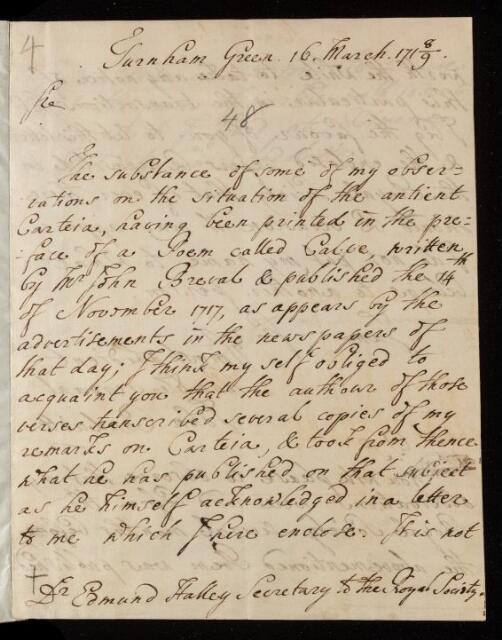 4
Turnham Green. 16. March. 171 8/9.
Sr
48
The substance of some of my obser-
-vations on the situation of the antient
Carteia, having been printed in the pre-
-face of a Poem called Calpe, written
by Mr John Breval & published the 14th
of November 1717, as appears by the
advertisements in the news papers of
that day; I think my self obliged to
acquaint you that the authour of those
verses transcribed several copies of my
remarks on Carteia, & took from thence
what he has published on that subject
as he himself acknowledged in a letter
to me which I here enclose. It is not
Dr Edmund Halley Secretary to the Royal Society.